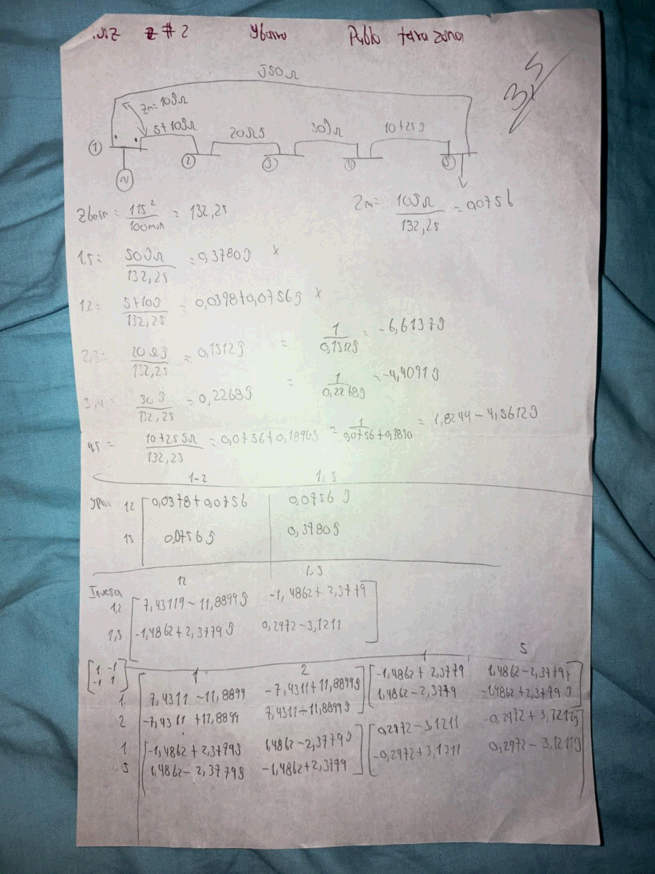 z # 2 Ybarra Pablo tarazona
3,5
J50Ω
Zm=10JΩ
5+10JΩ 20ΩJ 30JΩ 10+25J
1 2 3 5
N
Zbase = 115² / 100MVA = 132,25 Zm = 10JΩ / 132,25 = 0,0756
1.5 = 50JΩ / 132,25 = 0,3780J x
1.2 = 5+10J / 132,25 = 0,0398+0,0756J x
2,3 = 20ΩJ / 132,25 = 0,1512J = 1 / 0,1512J = -6,6137J
3,4 = 30J / 132,25 = 0,2268J = 1 / 0,2268J = -4,4091J
45 = 10+25JΩ / 132,25 = 0,0756+0,1890J = 1 / 0,0756+0,1890 = 1,8244-4,5612J
1-2 1,5
12 0,0378+0,0756 0,0756J
15 0,0756J 0,3780J
12 1,5
Inversa
1,2 7,43119-11,8899J -1,4862+2,3779
1,5 -1,4862+2,3779J 0,2972-3,1211
1 -1
-1 1
1 2 1 5
1 7,4311-11,8899 -7,4311+11,8899J -1,4862+2,3779 1,4862-2,3779J
2 -7,4311+11,8899 7,4311-11,8899J 1,4862-2,3779 -1,4862+2,3779J
1 -1,4862+2,3779J 1,4862-2,3779J 0,2972-3,1211 -0,2972+3,1211J
5 1,4862-2,3779J -1,4862+2,3779 -0,2972+3,1211 0,2972-3,1211J